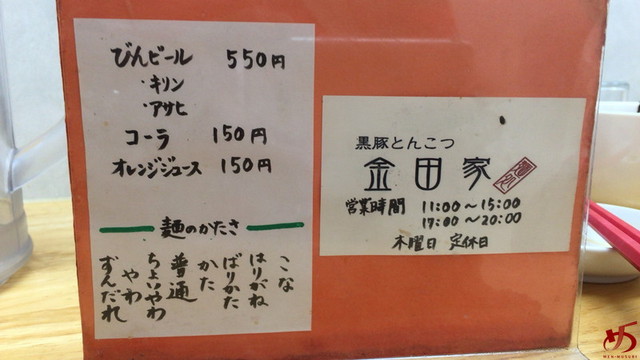 びんビール 550円
・キリン
・アサヒ
コーラ 150円
オレンジジュース 150円
麺のかたさ
こな
はりがね
ばりかた
かた
普通
ちょいやわ
やわ
ずんだれ
黒豚とんこつ
金田家
営業時間 11:00〜15:00
17:00〜20:00
木曜日 定休日
MEN-MUSUBI